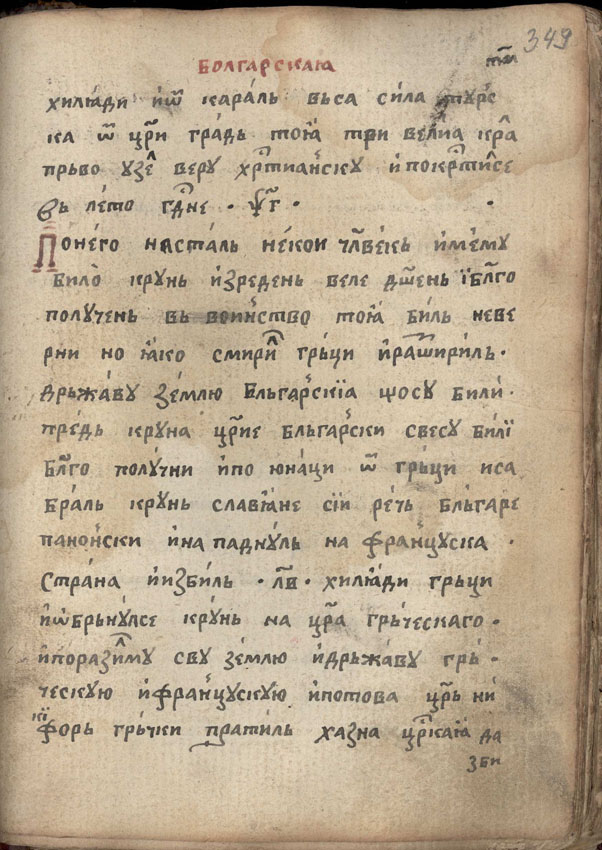 БОЛГАРСКАꙖ
349
хилѧди и҆ѿ караль вьса сила турс
ка ѿ цр҃и градь тоꙗ три велиа кра
прьво узеⷧ веру хрⷭ҇тианску и҆покрⷭ҇тисе
вь лето гдⷭ҇не · ѱ҃г ·
Понего насталь некои чл҃векь име́му
било̀ крунь и҆зредень веле дш҃ень ї бл҃го
получень вь воинство тоꙗ биль неве
рни но ꙗко смириⷧ грьци и҆раширилъ ·
дрьжаву землю Бльгарскїа щосу били ·
предь круна цр҃ие бльгарски свесу билї
бл҃го получни и҆по юнаци ѿ грьци иса
браль крунь славꙗне сїи речь бльгаре
панонски и҆на паднуль на француска ·
страна и҆избиль · л҃в · хилѧди грьци
и҆ѡбрьнулсе крунь на цр҃а грьческаго ·
и҆поразиⷧму сву землю и҆дрьжаву грь ·
ческую и҆француcкую и҆потова цр҃ь ни
кї
форь грьчки пратиль хазна црⷭ҇каїа да
зби